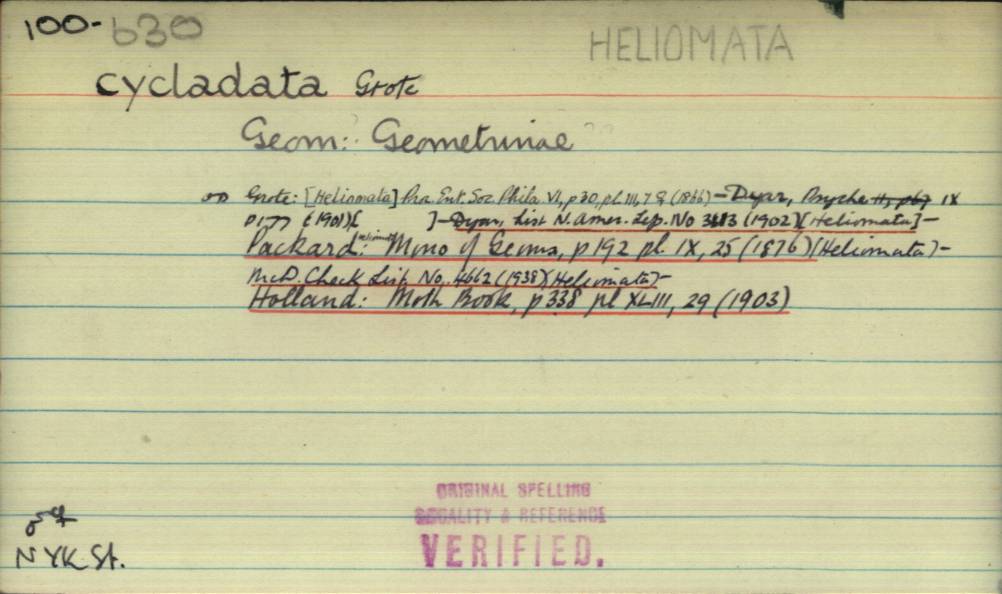 100-630
HELIOMATA
cycladata Grote
Geom: Geometrinae ??
Grote: [Heliomata] Pro. Ent. Soc. Phila. VI, p 30, pl. III, 7 ♀ (1866) - Dyar, Psyche IX
p. 177 (1901)[ ] - Dyar, List N. Amer. Lep. No 3413 (1902)[Heliomata] -
Packard: Mono of Geoms, p 192 pl. IX, 25 (1876)(Heliomata) -
McD. Check List No. 4662 (1938)(Heliomata) -
Holland: Moth Book, p 338 pl XLIII, 29 (1903)
♂♀
N YK St.
ORIGINAL SPELLING
LOCALITY & REFERENCE
VERIFIED.